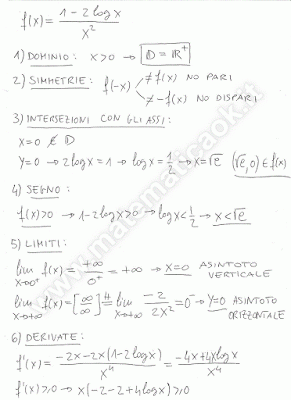 f(x) = (1 - 2 log x) / x²
1) DOMINIO: x>0 → D = R⁺
2) SIMMETRIE: f(-x) ≠ f(x) NO PARI
≠ -f(x) NO DISPARI
3) INTERSEZIONI CON GLI ASSI:
x=0 ∉ D
y=0 → 2 log x = 1 → log x = 1/2 → x = √e (√e, 0) ∈ f(x)
4) SEGNO:
f(x)>0 → 1-2 log x>0 → log x < 1/2 → x < √e
5) LIMITI:
lim x→0⁺ f(x) = +∞/0⁺ = +∞ → x=0 ASINTOTO VERTICALE
lim x→+∞ f(x) = [∞/∞] =H lim x→+∞ -2/2x² = 0⁻ → y=0 ASINTOTO ORIZZONTALE
6) DERIVATE:
f'(x) = (-2x - 2x(1-2 log x)) / x⁴ = (-4x+4x log x) / x⁴
f'(x) ≥ 0 → x(-2-2+4 log x) ≥ 0
www.matematicaok.it